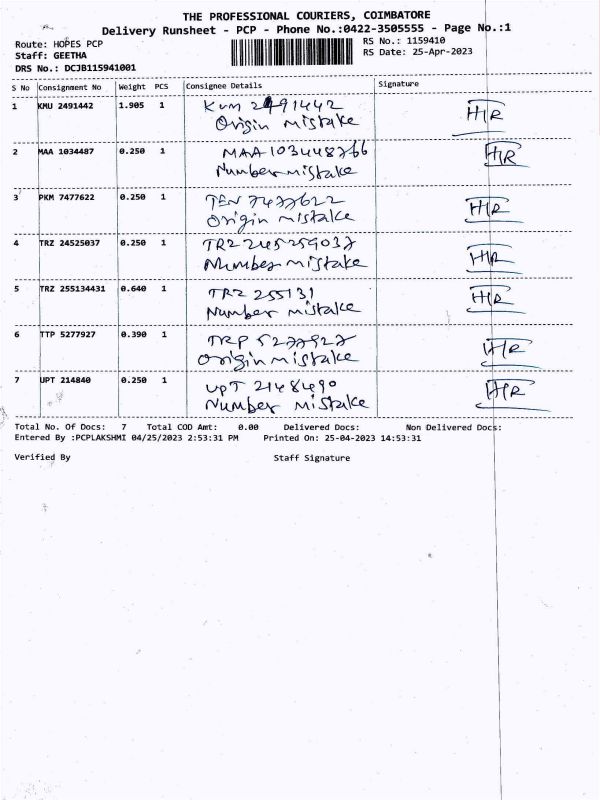 THE PROFESSIONAL COURIERS, COIMBATORE
Delivery Runsheet - PCP - Phone No.:0422-3505555 - Page No.:1
Route: HOPES PCP
RS No.: 1159410
Staff: GEETHA
RS Date: 25-Apr-2023
DRS No.: DCJB115941001
S No Consignment No Weight PCS Consignee Details Signature
1 KMU 2491442 1.905 1 KVM 2491442 H/R
Origin mistake
2 MAA 1034487 0.250 1 MAA 103448766 H/R
Number mistake
3 PKM 7477622 0.250 1 TEN 7477622 H/R
Origin mistake
4 TRZ 24525037 0.250 1 TRZ 245259037 H/R
Number mistake
5 TRZ 255134431 0.640 1 TRZ 255131 H/R
Number mistake
6 TTP 5277927 0.390 1 TRP 5277927 H/R
Origin mistake
7 UPT 214840 0.250 1 UPT 2148490 H/R
Number mistake
Total No. Of Docs: 7 Total COD Amt: 0.00 Delivered Docs: Non Delivered Docs:
Entered By :PCPLAKSHMI 04/25/2023 2:53:31 PM Printed On: 25-04-2023 14:53:31
Verified By Staff Signature